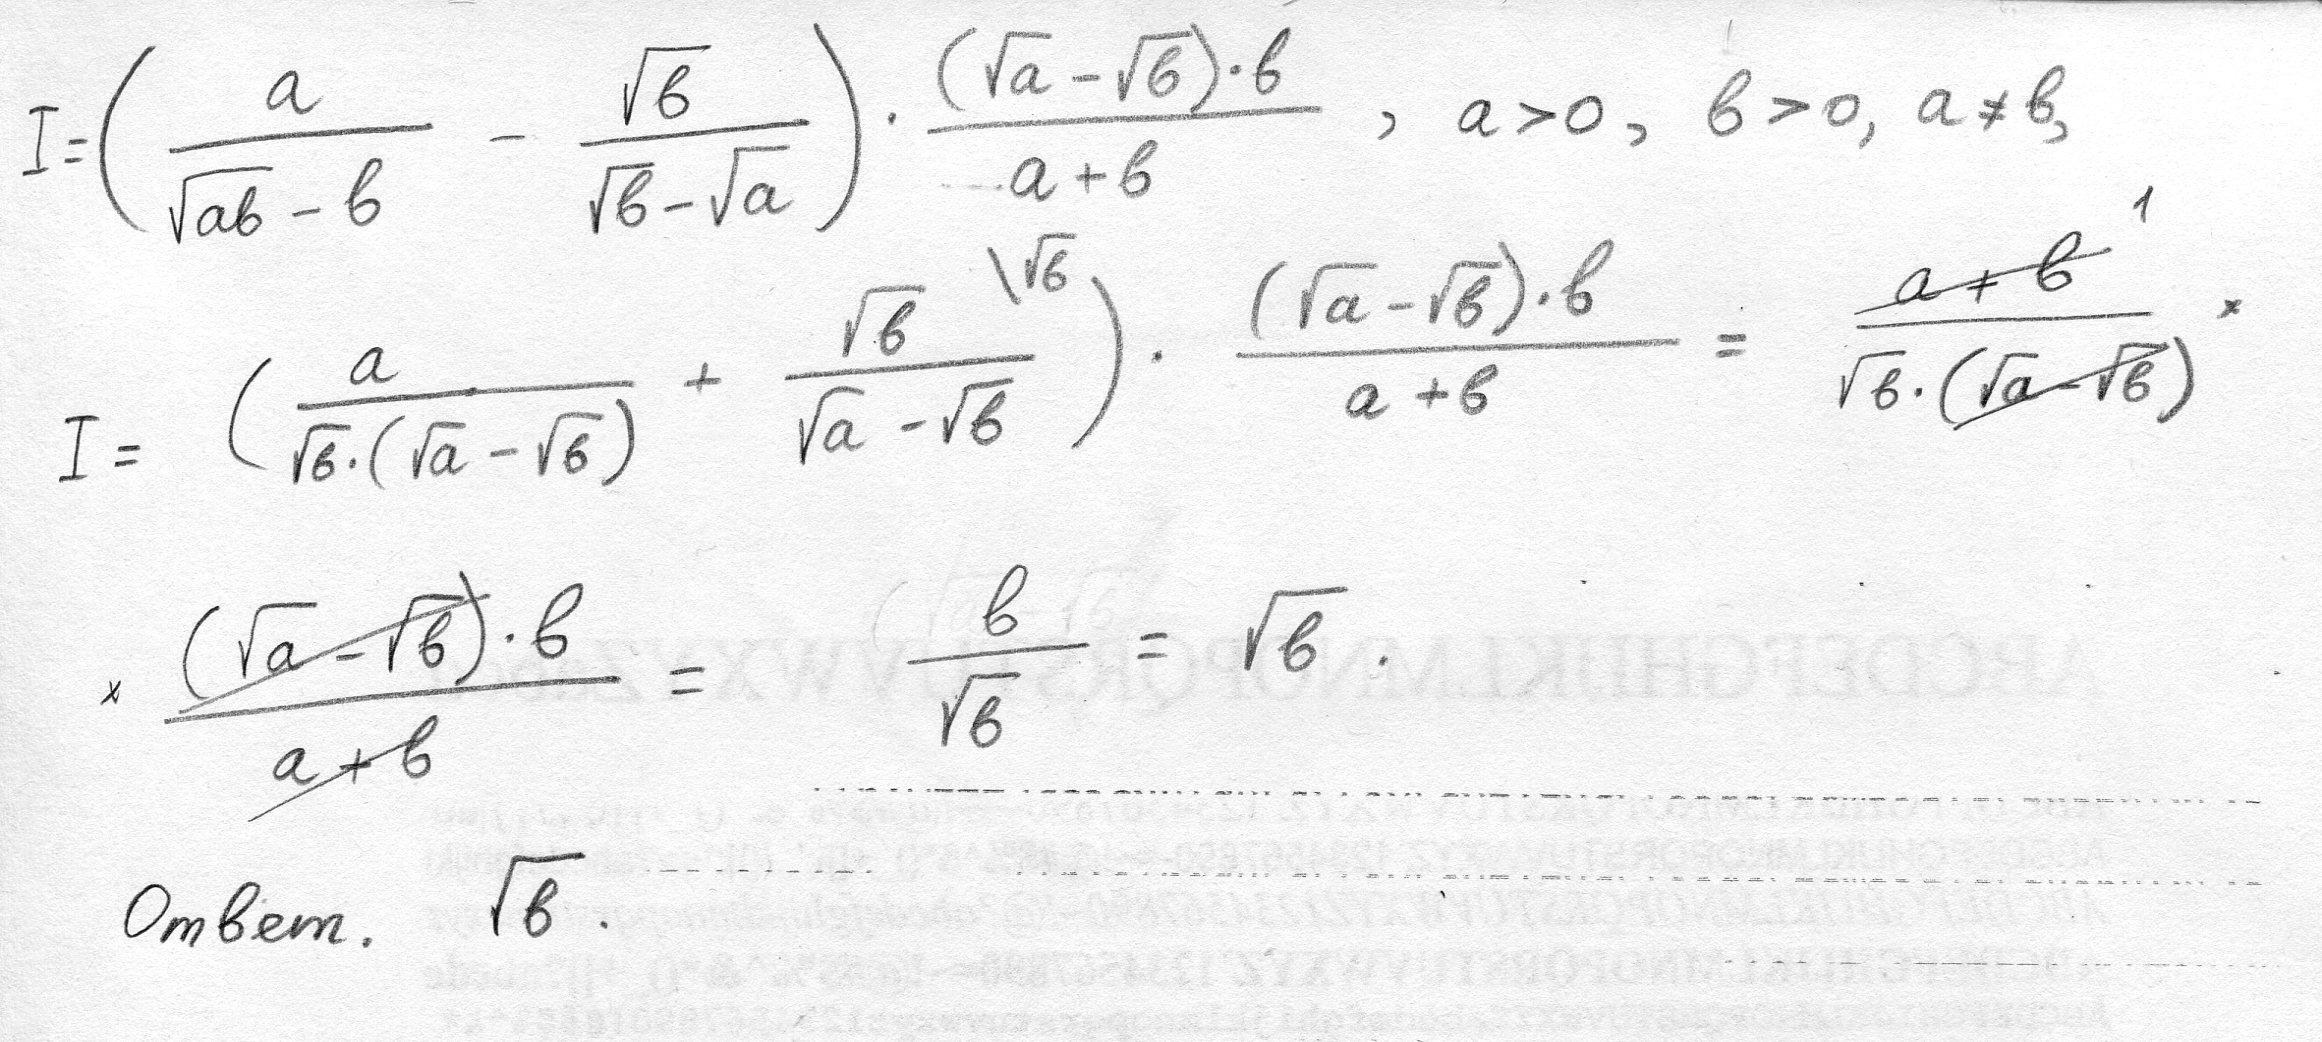 I = ( a / (√ab − b) − √b / (√b − √a) ) · (√a − √b)·b / (a + b) , a > 0, b > 0, a ≠ b,
I = ( a / (√b·(√a − √b)) + √b / (√a − √b) \√b ) · (√a − √b)·b / (a + b) = (a + b) 1 / (√b·(√a − √b)) ×
× (√a − √b)·b / (a + b) = b / √b = √b .
Ответ. √b .